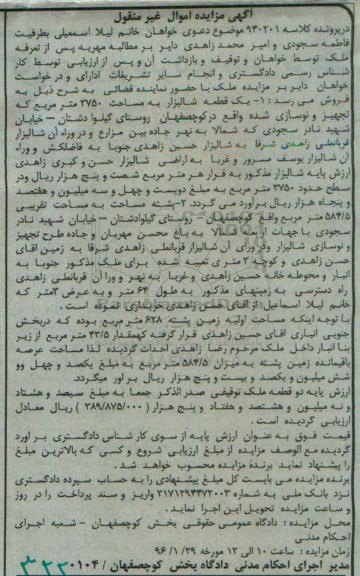 آگهی مزایده اموال غیر منقول
درپرونده کلاسه ۹۳۰۲۰۱ موضوع دعوی خواهان خانم لیلا اسمعیلی بطرفیت
فاطمه سجودی و امیر محمد زاهدی دایر بر مطالبه مهریه پس از تعرفه
ملک توسط خواهان و توقیف و بازداشت آن و پس از ارزیابی توسط کار
شناس رسمی دادگستری و انجام سایر تشریفات اداری و در خواست
خواهان دایر بر مزایده ملک با حضور نماینده قضائی به شرح ذیل به
فروش می رسد : ۱- یک قطعه شالیزار به مساحت ۳۷۵۰ متر مربع که
تجهیز و نوسازی شده واقع در کوچصفهان روستای گیلوا دشتان – خیابان
شهید نادر سجودی که شمالا به نهر جاده بین مزارع و در ورای آن شالیزار
قربانعلی زاهدی شرقا به شالیزار حسین زاهدی جنوبا به فاضلکش و وراء
آن شالیزار یوسف مسرور و غربا به اراضی شالیزار حسن و کبری زاهدی
ارزش پایه شالیزار مذکور به قرار هر متر مربع شصت و پنج هزار ریال ودر
سطح حدود ۳۷۵۰ متر مربع به مبلغ دویست و چهل و سه میلیون و هفتصد
و پنجاه هزار ریال برآورد می گردد. ۲-پشته مساحت به مساحت تقریبی
۵۸۴/۵ متر مربع واقع کوچصفهان – روستای گیلوادشتان – خیابان شهید نادر
سجودی با جهات اربعه شمالا به باغ محسن مهربان و جاده طرح تجهیز
و نوسازی شالیزار ودر ورای آن شالیزار قربانعلی زاهدی شرقا به زمین اقای
حسن زاهدی و کوچه ۳ متری تعبیه شده برای ملک مذکور جنوبا به
انبار و محوطه خانه حسین زاهدی و غربا به نهر و ورا آن قربانعلی زاهدی
راه دسترسی به زمینهای مذکور به طول ۶۴ متر و به عرض ۳متر که
خانم لیلا اسماعیل از آقای حسن زاهدی خریداری نموده است .
با توجه اینکه مساحت اولیه زمین پشته ۶۲۸ متر مربع بوده که دربخش
جنوبی انباری اقای حسین زاهدی قرار گرفته کهمقدار ۴۳/۵ متر مربع از زیر
بنا انبار داخل ملک مرحوم رضا زاهدی احداث گردیده لذا مساحت عرصه
باقیمانده زمین پشته به میزان ۵۸۴/۵ متر مربع به مبلغ یکصد و چهل وو
شش میلیون و یکصد و بیست و پنج هزار ریال بر اور میگردد.
ارزش پایه دو قطعه ملک توقیفی صدر الذکر جمعا به مبلغ سیصد و هشتاد
و نه میلیون و هشتصد و هفتاد و پنج هزار ( ۳۸۹/۸۷۵/۰۰۰ ) ریال معادل
ارزیابی گردیده است .
قیمت فوق به عنوان ارزش پایه از سوی کار شناس دادگستری بر اورد
گردیده مع الوصف مزایده از مبلغ ارزیابی شروع و کسی که بالاترین مبلغ
را پیشنهاد نماید برنده مزایده محسوب خواهد شد .
برنده مزایده می بایست کل مبلغ پیشنهادی را به حساب سپرده دادگستری
نزد بانک ملی به شماره ۲۱۷۱۲۹۴۴۷۲۰۰۳ واریز و سند پرداخت را در روز
و ساعت مزایده تحویل این اجرا نماید .
محل مزایده : دادگاه عمومی حقوقی بخش کوچصفهان – شعبه اجرای
احکام مدنی
زمان مزایده : ساعت ۱۰ الی ۱۲ مورخه ۹۶/۱/۲۹
مدیر اجرای احکام مدنی دادگاه بخش کوچصفهان / ۰۱۰۴
۳۲۲